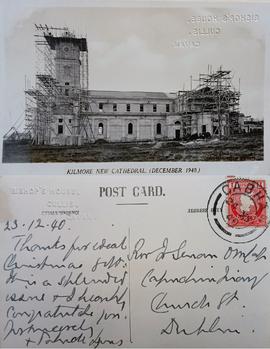 BISHOP'S HOUSE,
CULLIE,
CAVAN.
KILMORE NEW CATHEDRAL. (DECEMBER 1940.)
BISHOP'S HOUSE,
CULLIE,
POST CARD.
CORRESPONDENCE
ADDRESS
CABH
23.12.40.
Thanks for ideal
Christmas gift.
It is a splendid
issue & I heartily
congratulate you.
+ Patrick Lyons
Rev. Fr Senan OMCap
Capuchin
Church St.
Dublin.